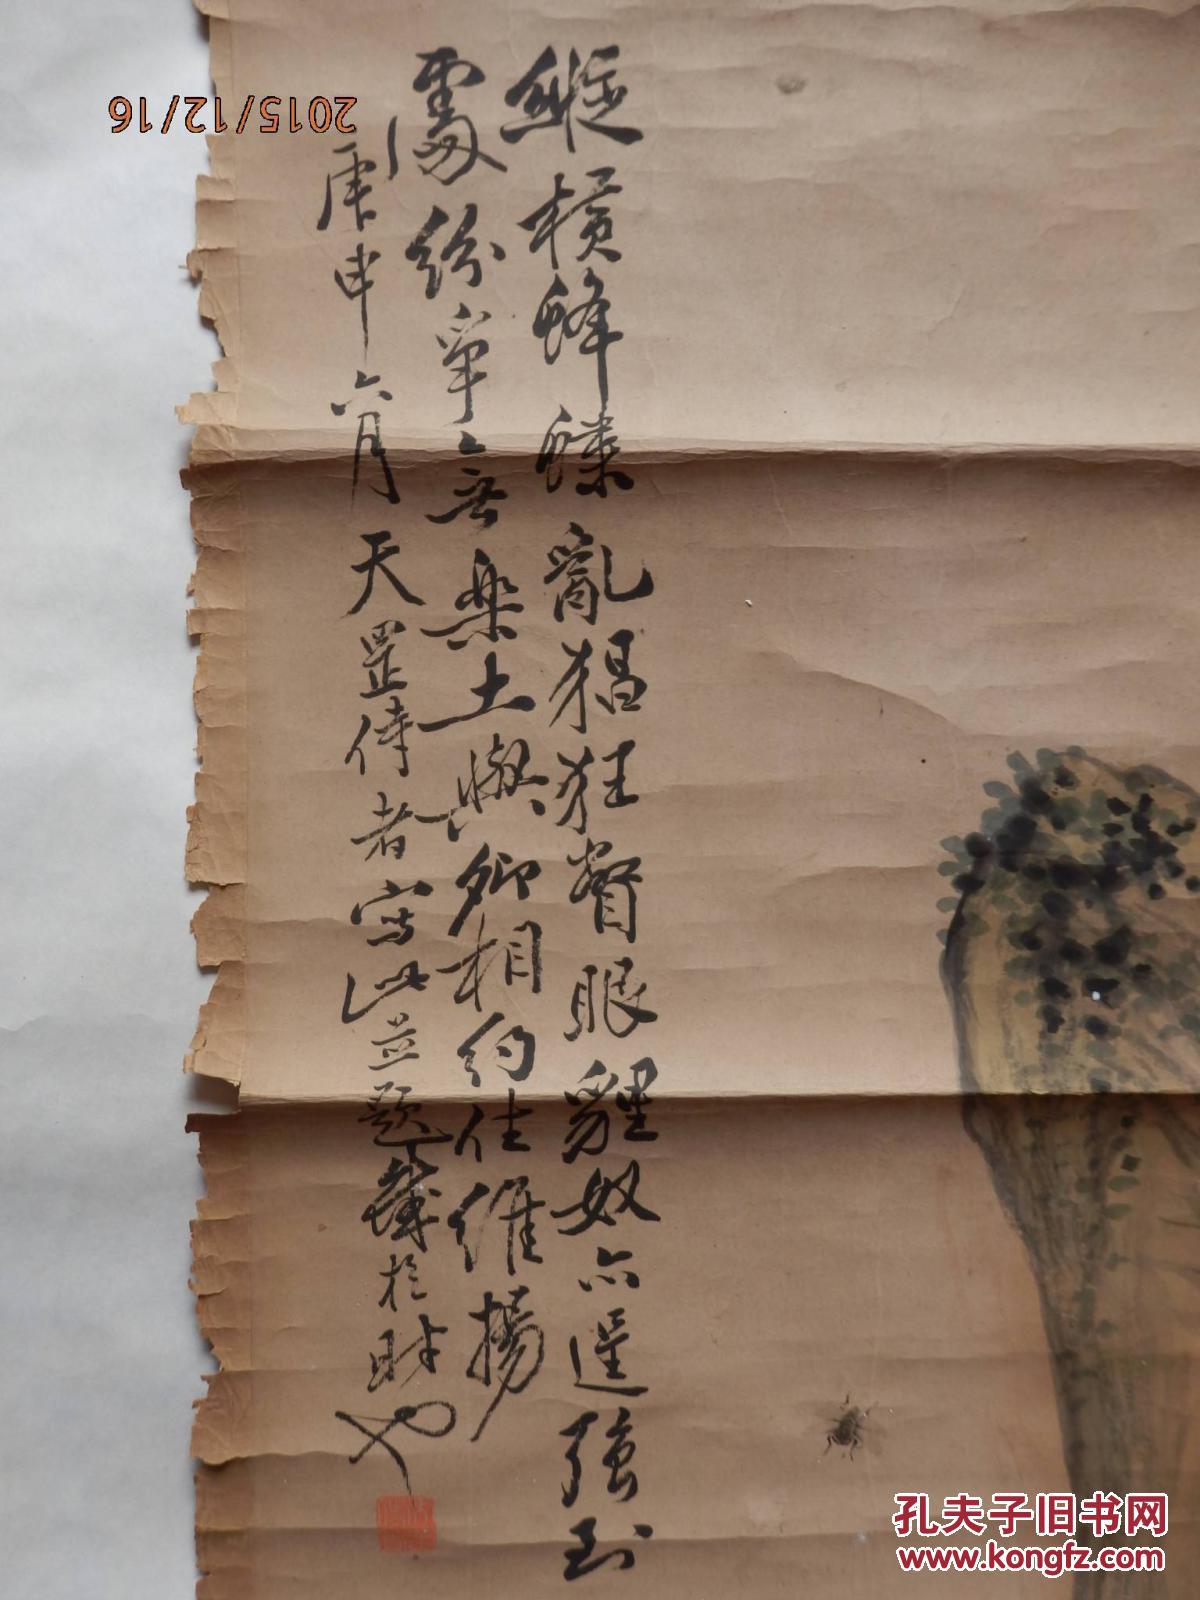 縱橫蜂蝶亂猖狂瞥眼貍奴亦逞強到
處紛爭無樂土與卿相約住維揚
庚申六月天罡侍者寫此並題於時也
2015/12/16
孔夫子旧书网
www.kongfz.com